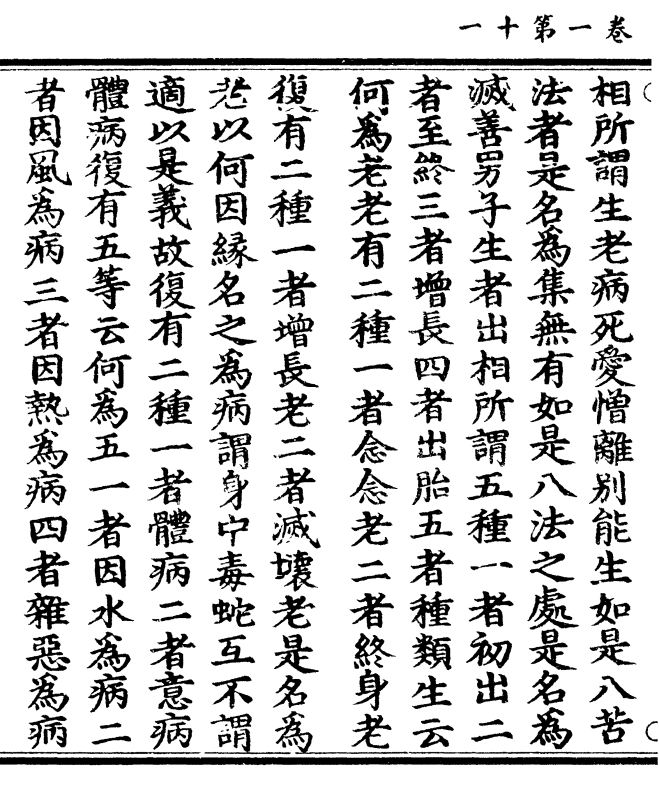 卷一第十一
相所謂生老病死愛憎離別能生如是八苦
法者是名為集無有如是八法之處是名為
滅善男子生者出相所謂五種一者初出二
者至終三者增長四者出胎五者種類生云
何為老老有二種一者念念老二者終身老
復有二種一者增長老二者滅壞老是名為
老以何因緣名之為病謂身中毒蛇互不謂
適以是義故復有二種一者體病二者意病
體病復有五等云何為五一者因水為病二
者因風為病三者因熱為病四者雜惡為病